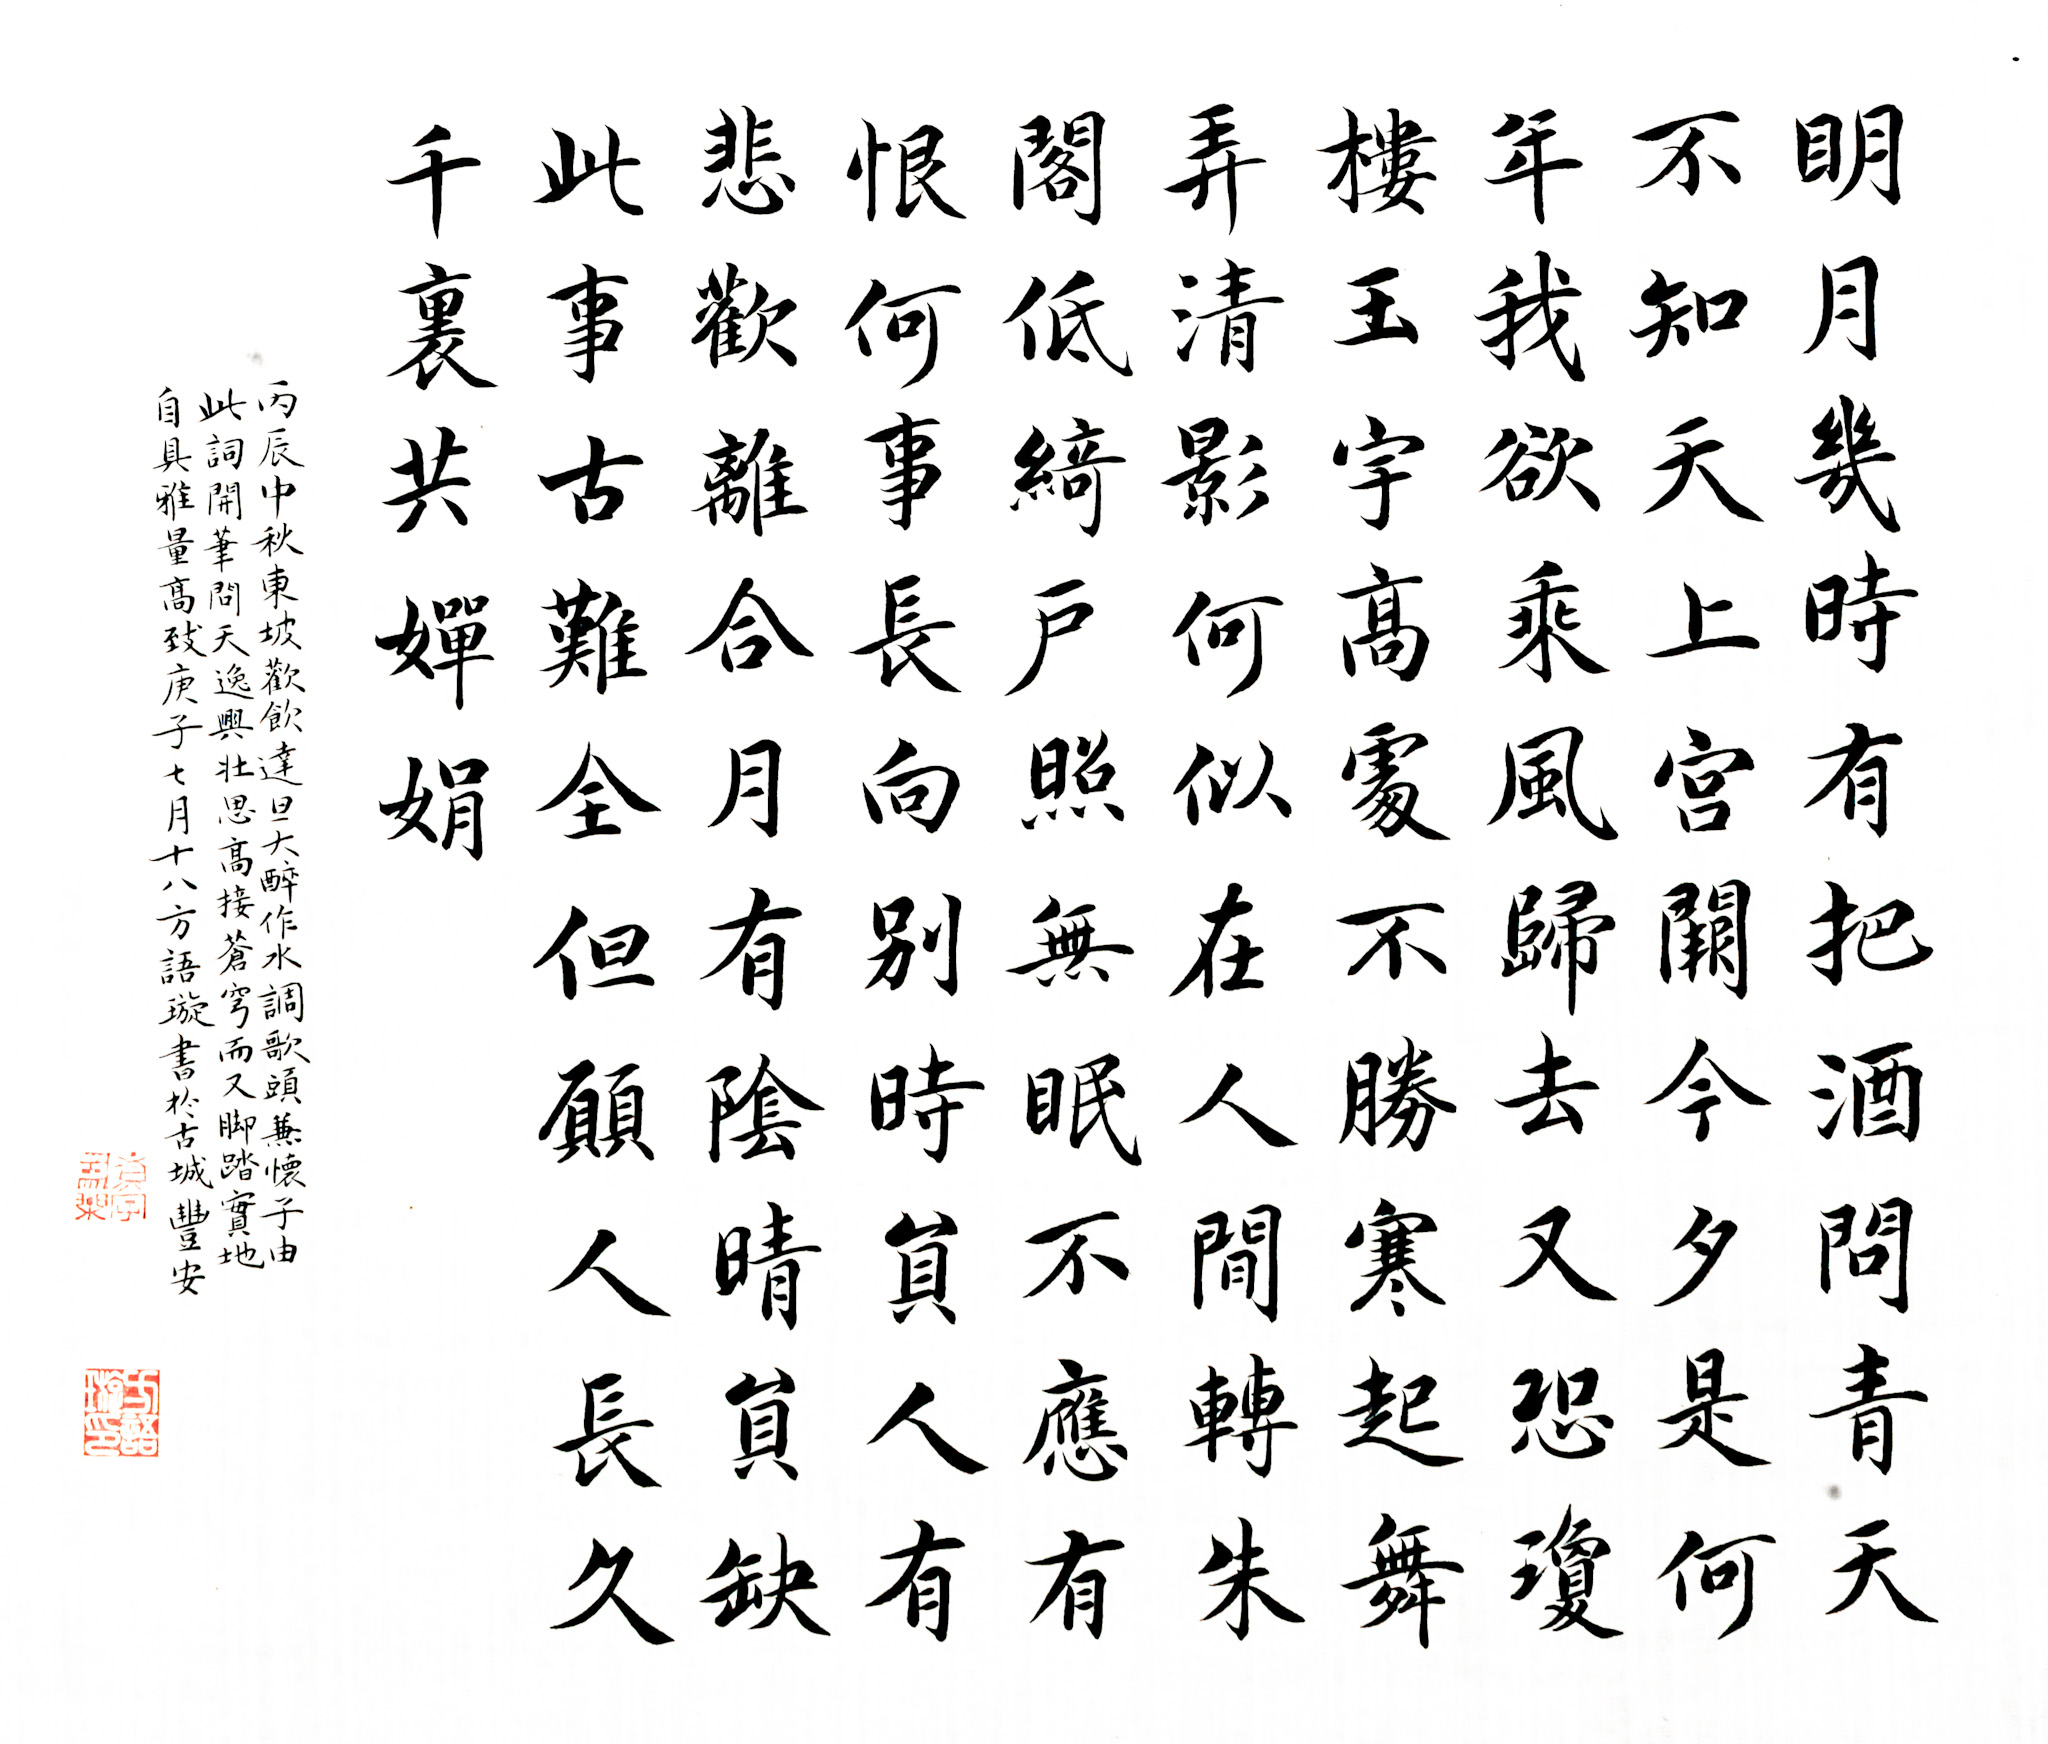 明月幾時有把酒問青天
不知天上宫闕今夕是何
年我欲乘風歸去又恐瓊
樓王宇高處不勝寒起舞
弄清影何似在人間轉朱
閣低綺户照無眠不應有
恨何事長向别時員人有
悲歡離合月有陰晴員缺
此事古難全但願人長久
千裏共嬋娟
丙辰中秋東坡歡飲達旦大醉作水調歌頭兼懷子由
此詞開筆問天逸興壯思高接蒼穹而又脚踏實地
自具雅量高致庚子七月十八方語璇書於古城豐安
方語璇印